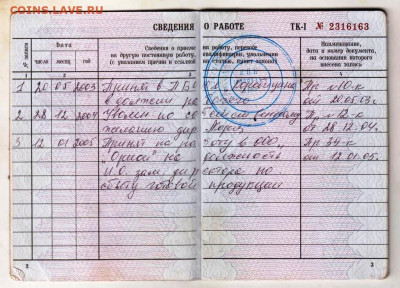 COINS.LAV.RU
СВЕДЕНИЯ О РАБОТЕ ТК-I № 2316163
№ записи Дата Сведения о приеме на работу, переводе Наименование,
на другую постоянную работу, квалификации, увольнении дата и номер документа,
(с указанием причин и на основании которого
число месяц год внесена запись
1 2 3 4
1 20 05 2003 Принят в Пр №10-к
в должности от 20.05.03г.
2 28 12 2004 Уволен по собственному Пр №12-к
желанию дир. от 28.12.04.
3 12 01 2005 Принят на работу в ООО Пр 34-к
"Орион" на должность от 12.01.05.
И.О. зам. директора по
сбыту готовой продукции
2 3